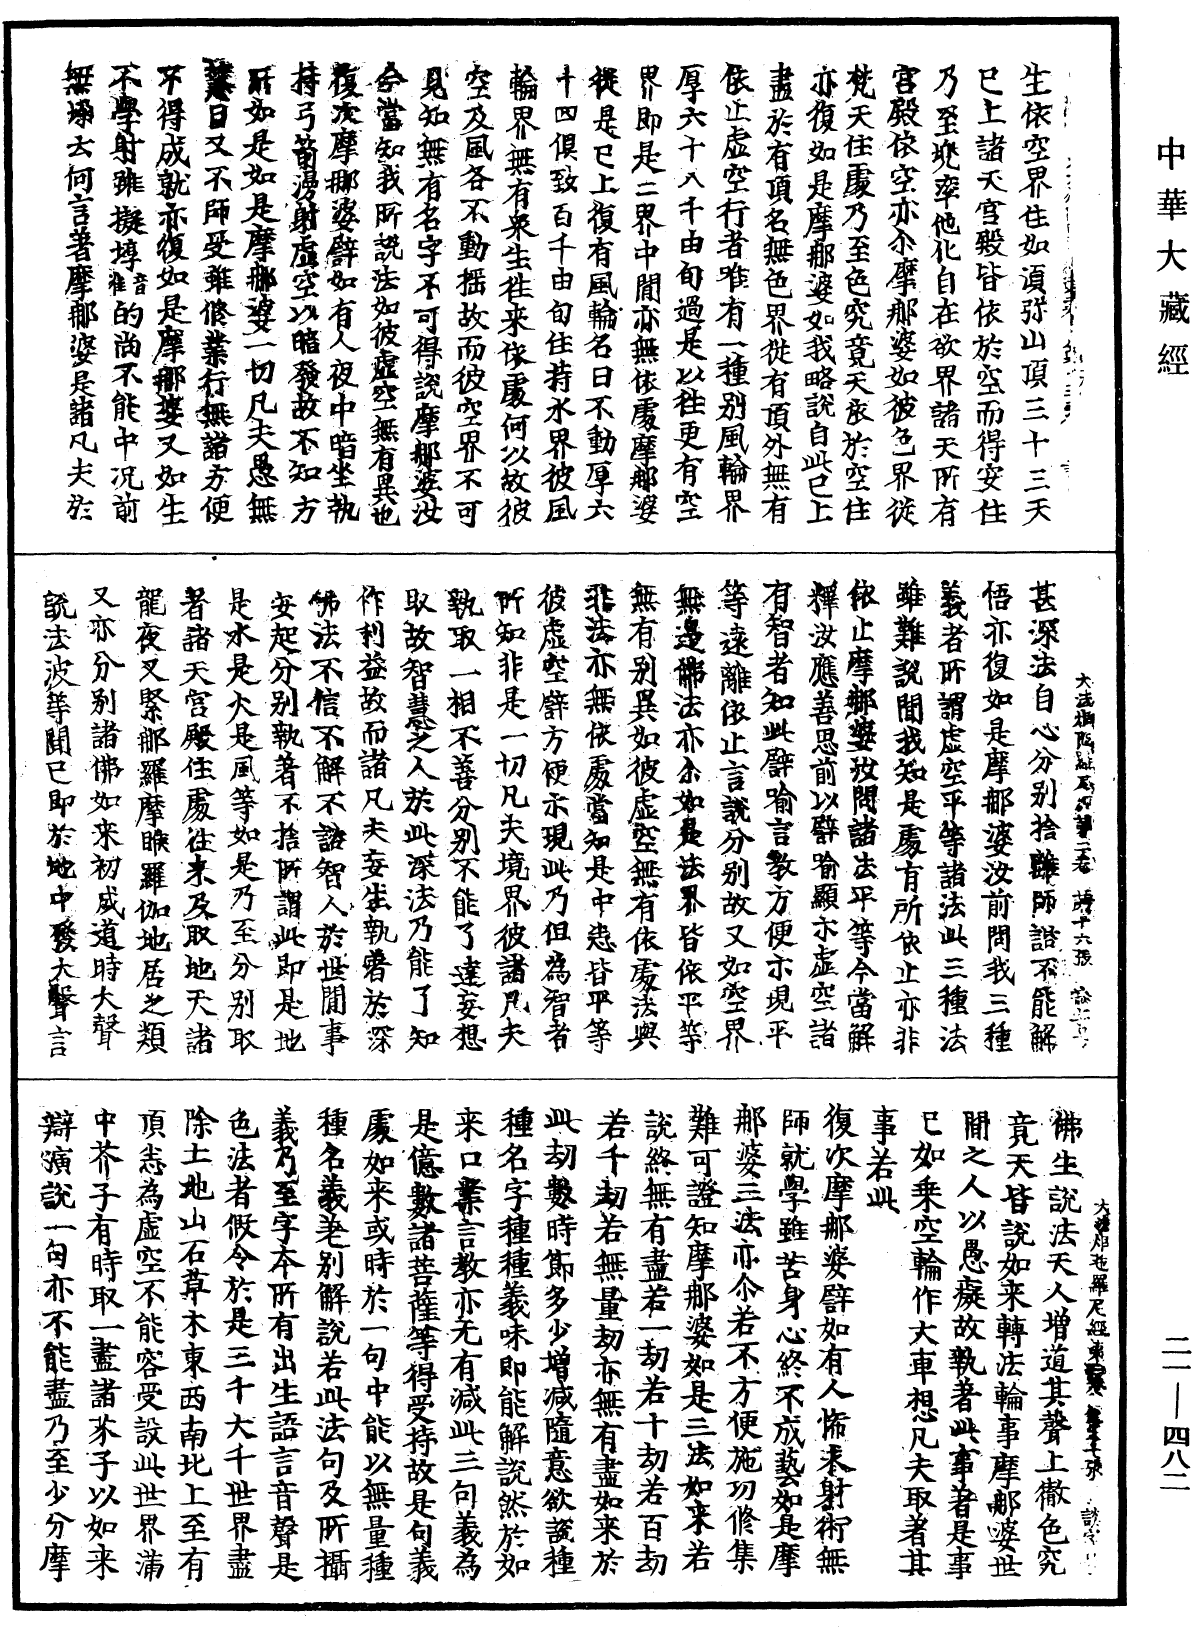 中華大藏經
生依空界住如須弥山頂三十三天
已上諸天宮殿皆依於空而得安住
乃至兜率他化自在欲界諸天所有
宮殿依空亦尒摩那婆如彼色界從
梵天住處乃至色究竟天依於空住
亦復如是摩那婆如我略說自此已上
盡於有頂名無色界從有頂外無有
依止虛空行者唯有一種別風輪界
厚六十八千由旬過是以往更有空
界即是二界中間亦無依處摩那婆
從是已上復有風輪名曰不動厚六
十四俱致百千由旬住持水界彼風
輪界無有衆生往來依處何以故彼
空及風各不動搖故而彼空界不可
見知無有名字不可得說摩那婆汝
今當知我所說法如彼虛空無有異也
復次摩那婆譬如有人夜中暗坐執
持弓箭漫射虛空以暗發故不知方
所如是如是摩那婆一切凡夫愚無
慧目又不師受雖修業行無諸方便
不得成就亦復如是摩那婆又如生
不學射雖擬埻音准的尚不能中況前
無埻去何言著摩那婆是諸凡夫於
甚深法自心分別捨離師諮不能解
悟亦復如是摩那婆汝前問我三種
義者所謂虛空平等諸法此三種法
雖難說聞我知是處有所依止亦非
依止摩那婆汝問諸法平等今當解
釋汝應善思前以譬喻顯示虛空諸
有智者知此譬喻言教方便示現平
等遠離依止言說分別故又如空界
無邊佛法亦尒如是法界皆依平等
無有別異如彼虛空無有依處法與
非法亦無依處當知是中悉皆平等
彼虛空譬方便示現此乃但為智者
所知非是一切凡夫境界彼諸凡夫
執取一相不善分別不能了達妄想
取故智慧之人於此深法乃能了知
作利益故而諸凡夫妄生執著於深
佛法不信不解不諮智人於世間事
妄起分別執著不捨所謂此即是地
是水是火是風等如是乃至分別取
著諸天宮殿住處往來及取地天諸
龍夜叉緊那羅摩睺羅伽地居之類
又亦分別諸佛如來初成道時大聲
說法波等聞已即於地中發大聲言
佛生說法天人增道其聲上徹色究
竟天皆說如來轉法輪事摩那婆世
間之人以愚癡故執著此事著是事
已如乗空輪作大車想凡夫取著其
事若此
復次摩那婆譬如有人悕求射術無
師就學雖苦身心終不成藝如是摩
那婆三法亦尒若不方便施功修集
難可證知摩那婆如是三法如來若
說終無有盡若一劫若十劫若百劫
若千劫若無量劫亦無有盡如來於
此劫數時節多少增減隨意欲說種
種名字種種義味即能解說然於如
来口業言教亦无有減此三句義為
是億數諸菩薩等得受持故是句義
處如來或時於一句中能以無量種
種名義差別解說若此法句及所攝
義乃至字本所有出生語言音聲是
色法者假令於是三千大千世界盡
除土地山石草木東西南北上至有
頂悉為虛空不能容受設此世界滿
中芥子有時取一盡諸芥子以如來
辯演說一句亦不能盡乃至少分摩
二一—四八二